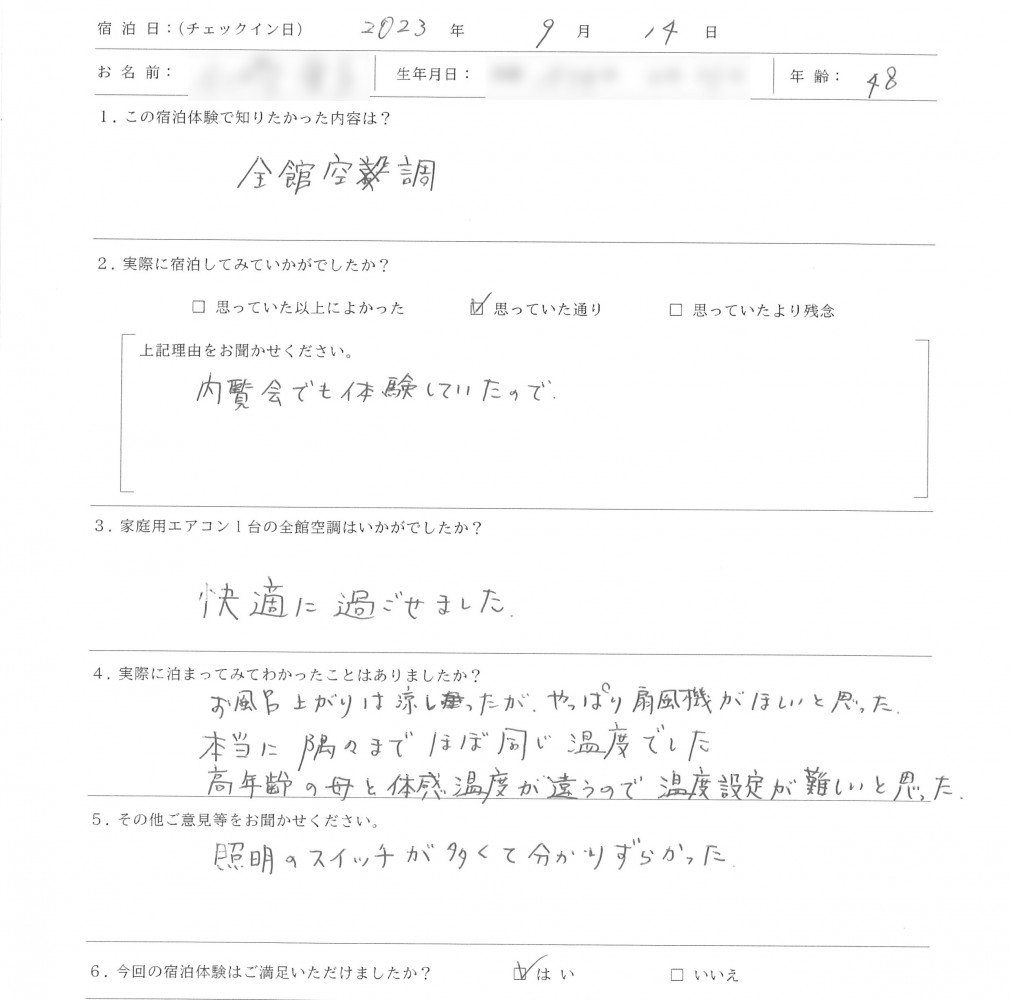 宿泊日：(チェックイン日) 2023年 9月 14日
お名前： 生年月日： 年齢： 48
1. この宿泊体験で知りたかった内容は？
全館空調
2. 実際に宿泊してみていかがでしたか？
□ 思っていた以上によかった ☑ 思っていた通り □ 思っていたより残念
上記理由をお聞かせください。
内覧会でも体験していたので.
3. 家庭用エアコン1台の全館空調はいかがでしたか？
快適に過ごせました.
4. 実際に泊まってみてわかったことはありましたか？
お風呂上がりは涼しかったが、やっぱり扇風機がほしいと思った.
本当に隅々までほぼ同じ温度でした
高年齢の母と体感温度が違うので温度設定が難しいと思った.
5. その他ご意見等をお聞かせください。
照明のスイッチが多くて分かりずらかった.
6. 今回の宿泊体験はご満足いただけましたか？ ☑ はい □ いいえ